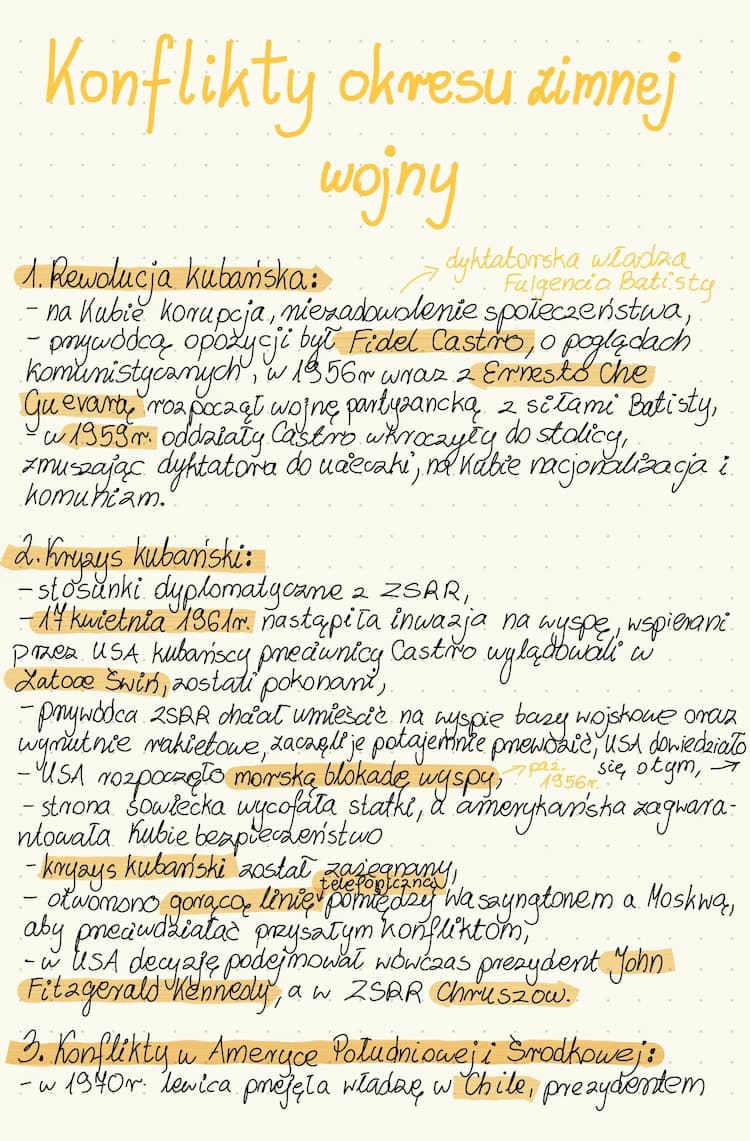 Konflikty okresu zimnej
wojny
1. Rewolucja kubańska:
dyktatorska władza
Fulgencio Batisty
- na Kubie korupcja, niezadowolenie społeczeństwa,
- przywódcą opozycji był Fidel Castro, o poglądach
komunistycznych, w 1956r wraz z Ernesto Che
Guevarą rozpoczął wojnę partyzancką z siłami Batisty,
- w 1959r. oddziały Castro wkroczyły do stolicy,
zmuszając dyktatora do ucieczki, na Kubie nacjonalizacja i
komunizm.
2. Kryzys kubański:
- stosunki dyplomatyczne z ZSRR,
- 17 kwietnia 1961r. nastąpiła inwazja na wyspę, wspierani
przez USA kubańscy przeciwnicy Castro wylądowali w
Zatoce Świń, zostali pokonani,
- przywódca ZSRR chciał umieścić na wyspie bazy wojskowe oraz
wyrzutnie rakietowe, zaczęli je potajemnie przewozić, USA dowiedziało
się o tym, →
- USA rozpoczęło morską blokadę wyspy, → paź.
1956r.
- strona sowiecka wycofała statki, a amerykańska zagwara-
ntowała Kubie bezpieczeństwo
- kryzys kubański został zażegnany,
- otworzono gorącą linię telefoniczną pomiędzy Waszyngtonem a Moskwą,
aby przeciwdziałać przyszłym konfliktom,
- w USA decyzję podejmował wówczas prezydent John
Fitzgerald Kennedy, a w ZSRR Chruszow.
3. Konflikty w Ameryce Południowej i Środkowej:
- w 1970r. lewica przejęła władzę w Chile, prezydentem